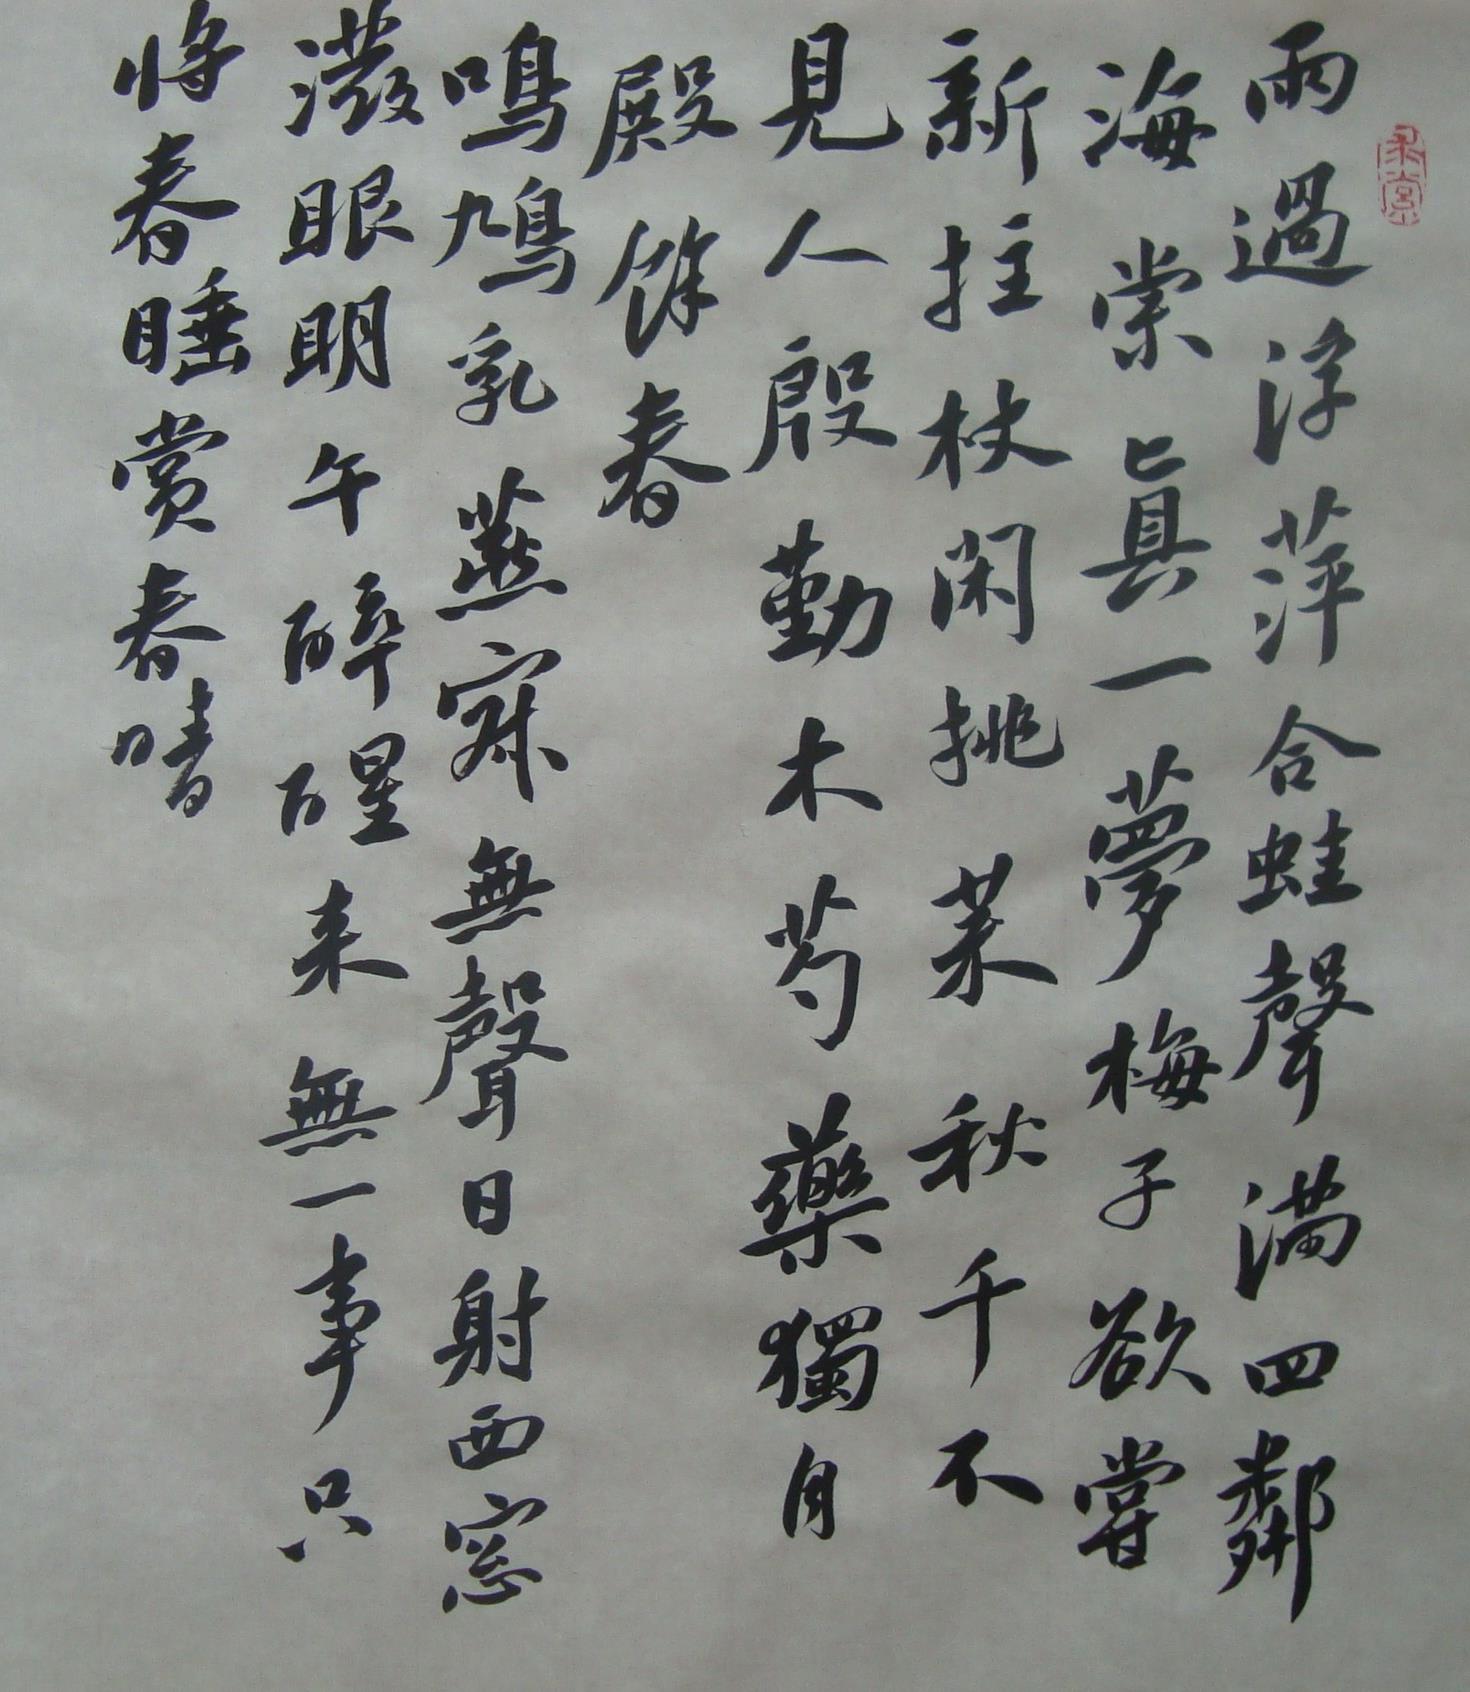 雨過浮萍合蛙聲满四鄰
海棠真一夢梅子欲嘗
新拄杖閑挑菜秋千不
見人殷勤木芍藥獨自
殿餘春
鳴鳩乳燕寂無聲日射西窓
潑眼明午醉醒来無一事只
将春睡赏春晴